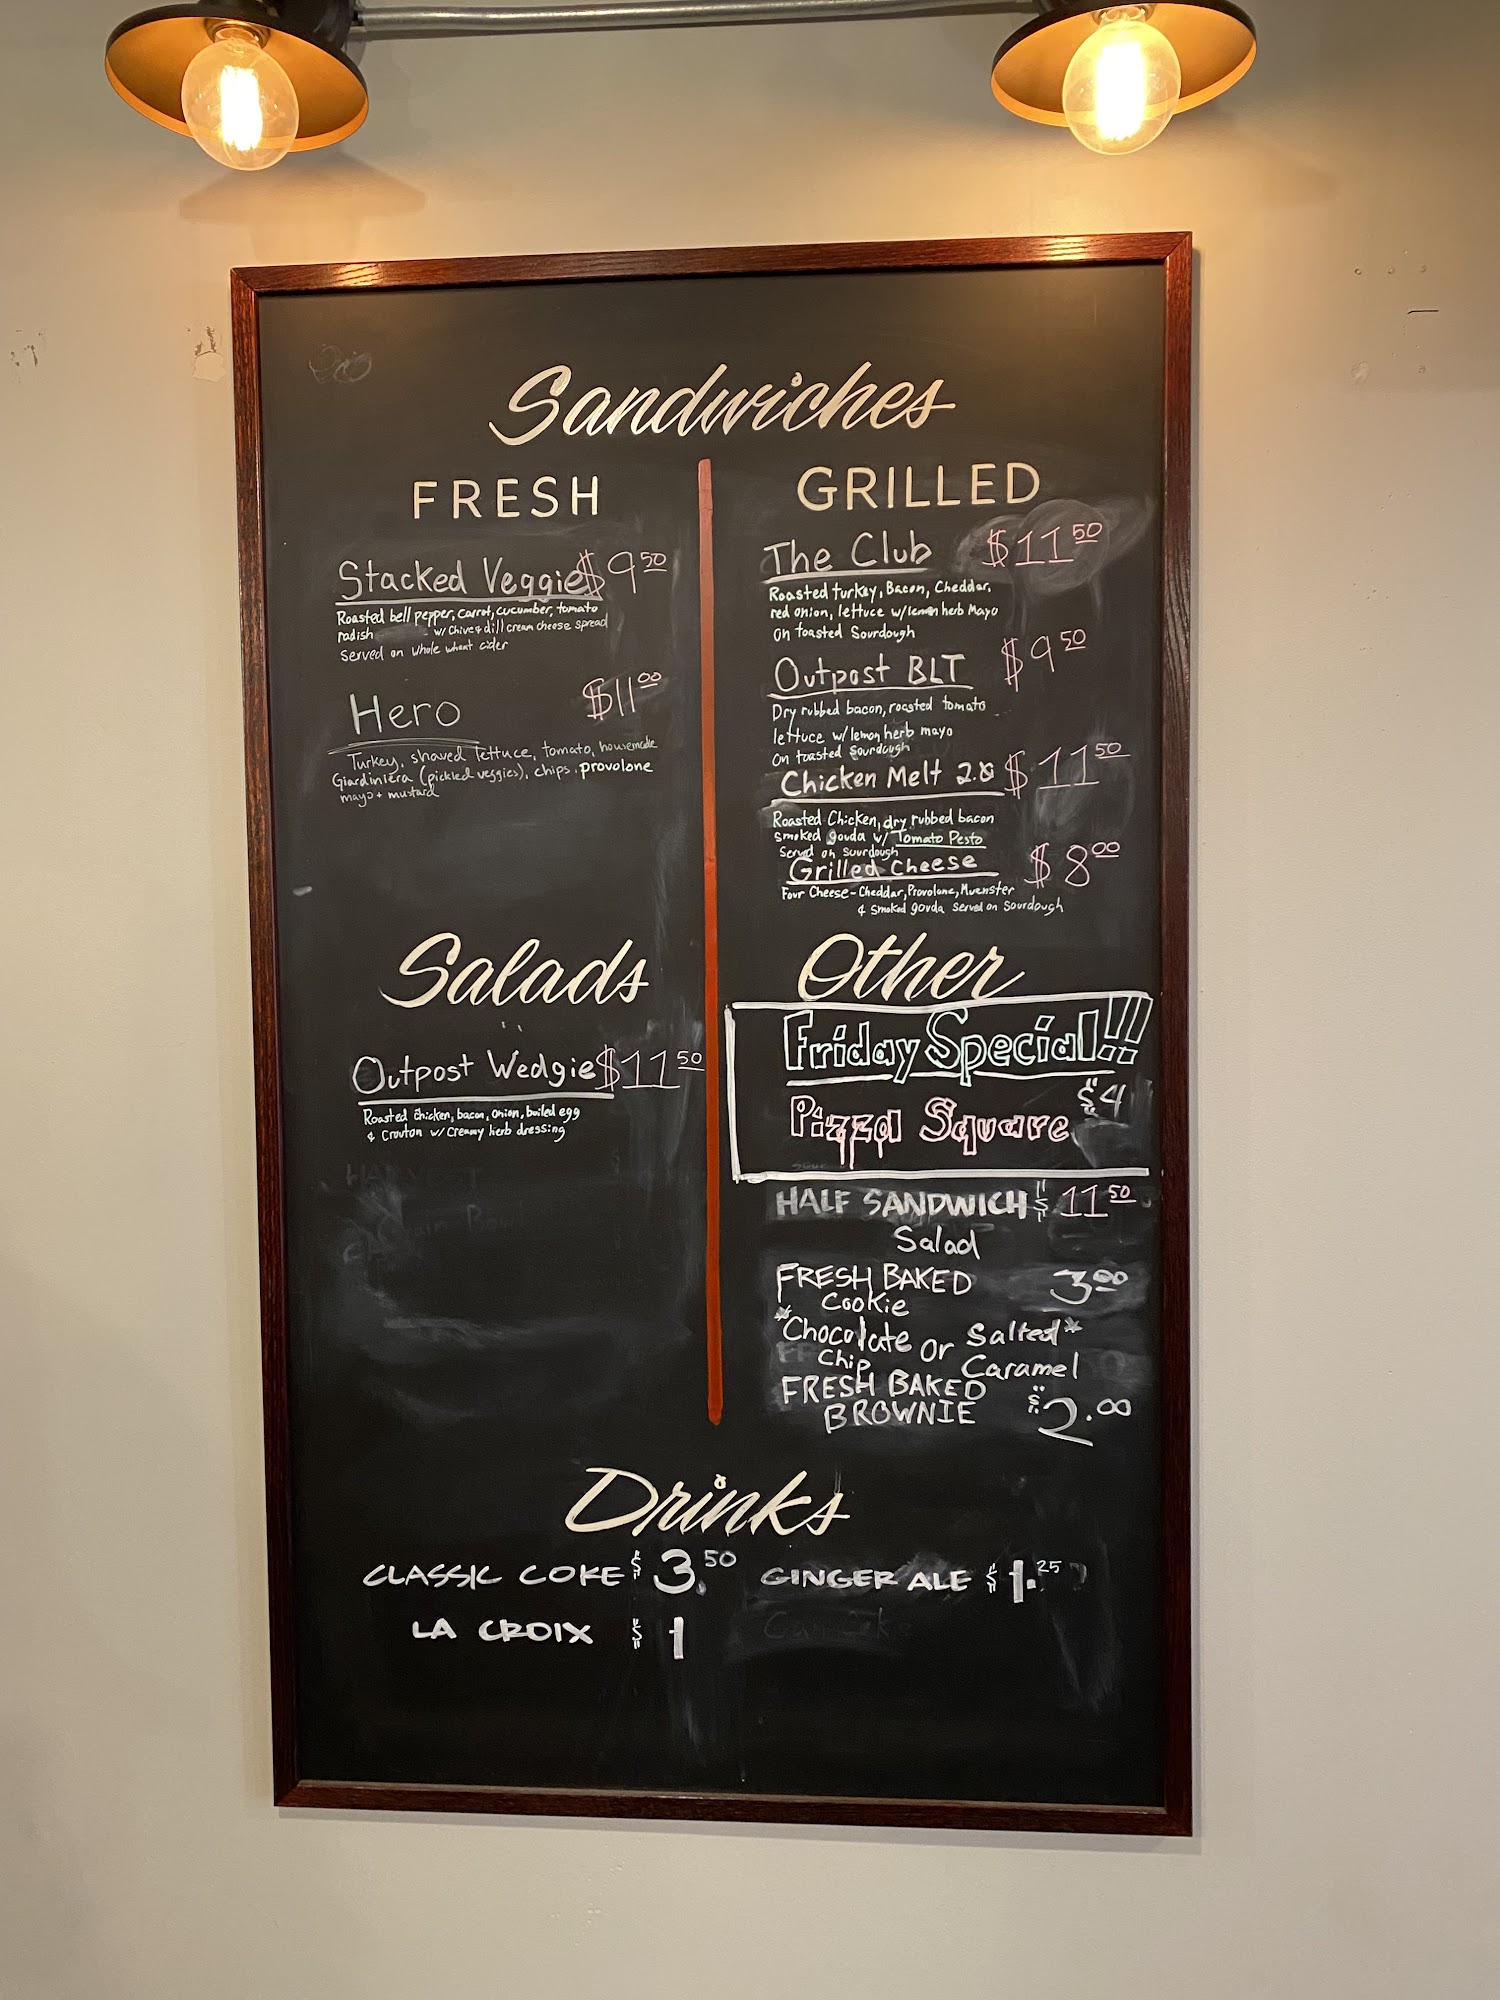 Sandwiches
FRESH
Stacked Veggie $9.50
Roasted bell pepper, carrot, cucumber, tomato
radish w/ Chive & dill cream cheese spread
Served on whole wheat cider
Hero $11.00
Turkey, shaved lettuce, tomato, housemade
Giardiniera (pickled veggies), chips, provolone
mayo + mustard
GRILLED
The Club $11.50
Roasted turkey, Bacon, Cheddar,
red onion, lettuce w/lemon herb Mayo
On toasted Sourdough
Outpost BLT $9.50
Dry rubbed bacon, roasted tomato
lettuce w/lemon herb mayo
On toasted Sourdough
Chicken Melt 2.0 $11.50
Roasted Chicken, dry rubbed bacon
Smoked gouda w/ Tomato Pesto
Served on sourdough
Grilled Cheese $8.00
Four Cheese - Cheddar, Provolone, Muenster
& Smoked gouda served on Sourdough
Salads
Outpost Wedgie $11.50
Roasted chicken, bacon, onion, boiled egg
& Crouton w/ Creamy herb dressing
Other
Friday Special!!!
Pizza Square $4
HALF SANDWICH $11.50
Salad
FRESH BAKED 3.00
Cookie
*Chocolate or Salted*
Chip Caramel
FRESH BAKED
BROWNIE $2.00
Drinks
CLASSIC COKE $3.50 GINGER ALE $1.25
LA CROIX $1